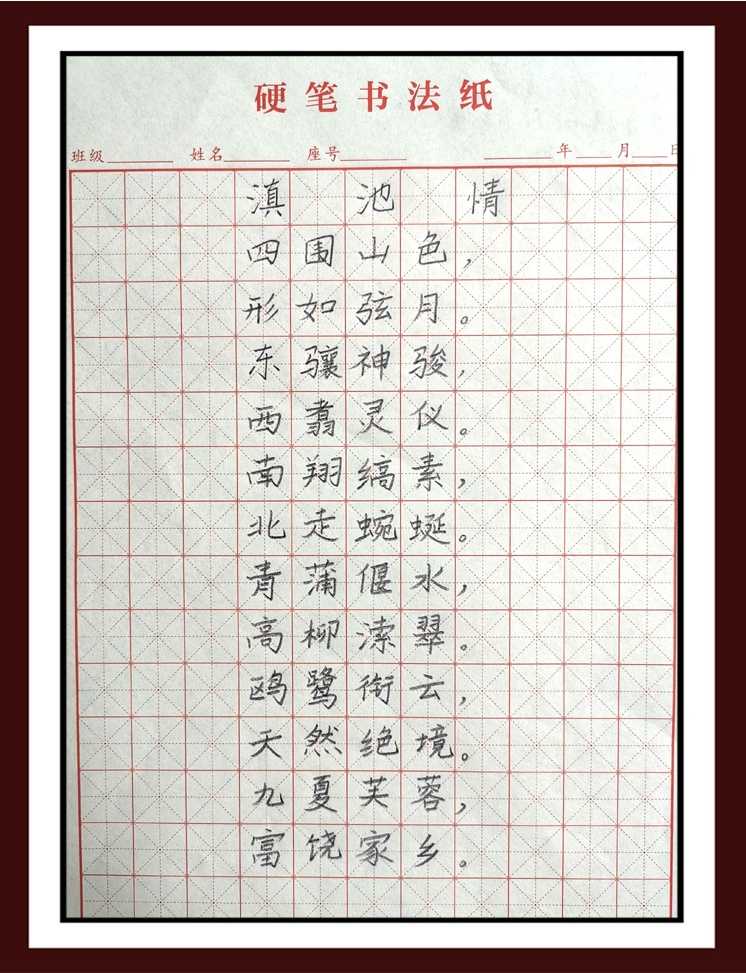 硬笔书法纸
班级 姓名 座号 年 月 日
滇池情
四围山色，
形如弦月。
东骧神骏，
西翥灵仪。
南翔缟素，
北走蜿蜒。
青蒲偃水，
高柳溹翠。
鸥鹭衔云，
天然绝境。
九夏芙蓉，
富饶家乡。